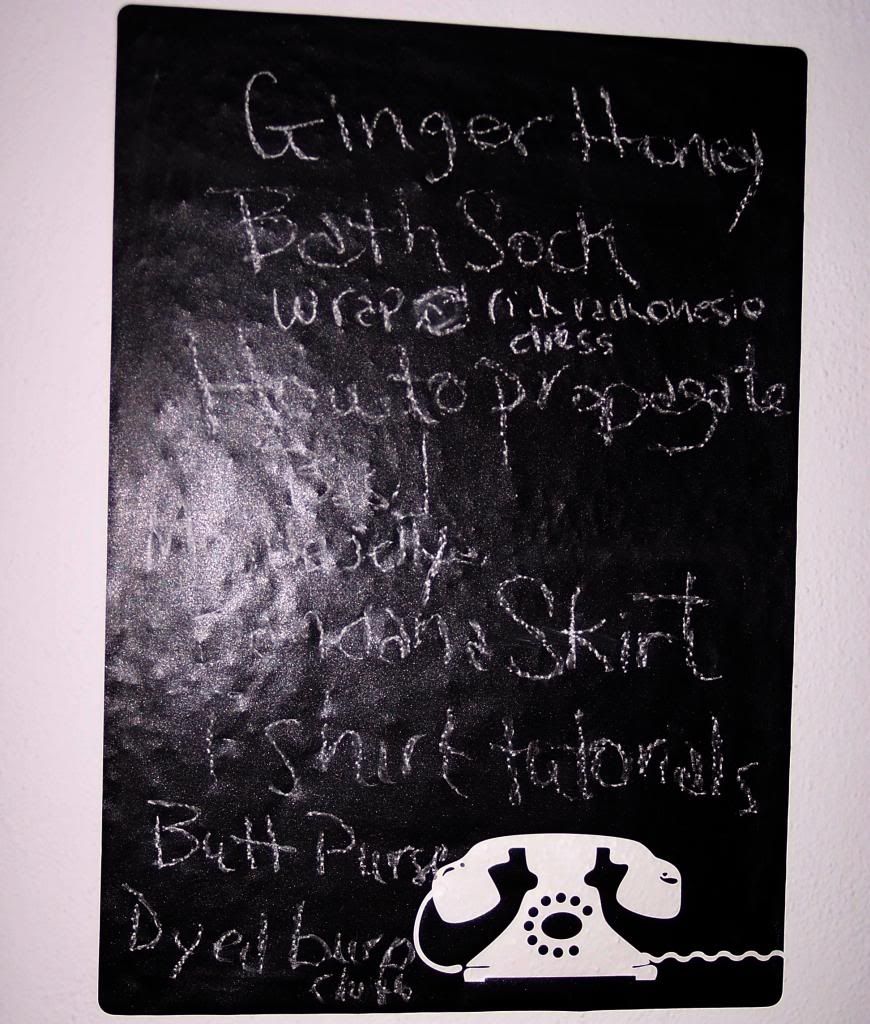 Ginger Honey
Bath Sock
wrap @ rick rack onesie
dress
How to propagate
Skirt
t shirt tutorials
Butt Purse
Dyed burp
cloth